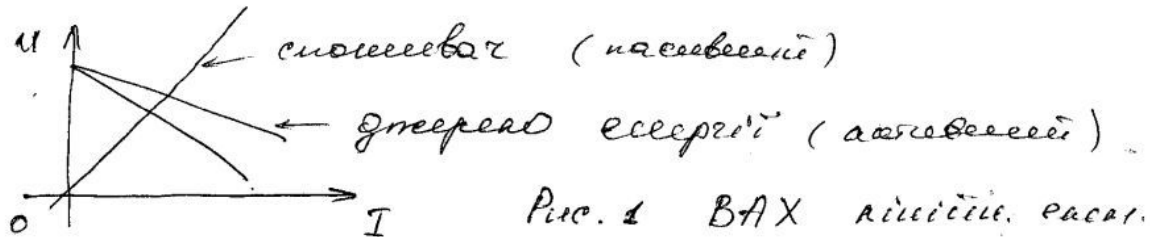 U
споживач (пасивний)
джерело енергії (активний)
O I
Рис. 1 ВАХ лінійн. елем.